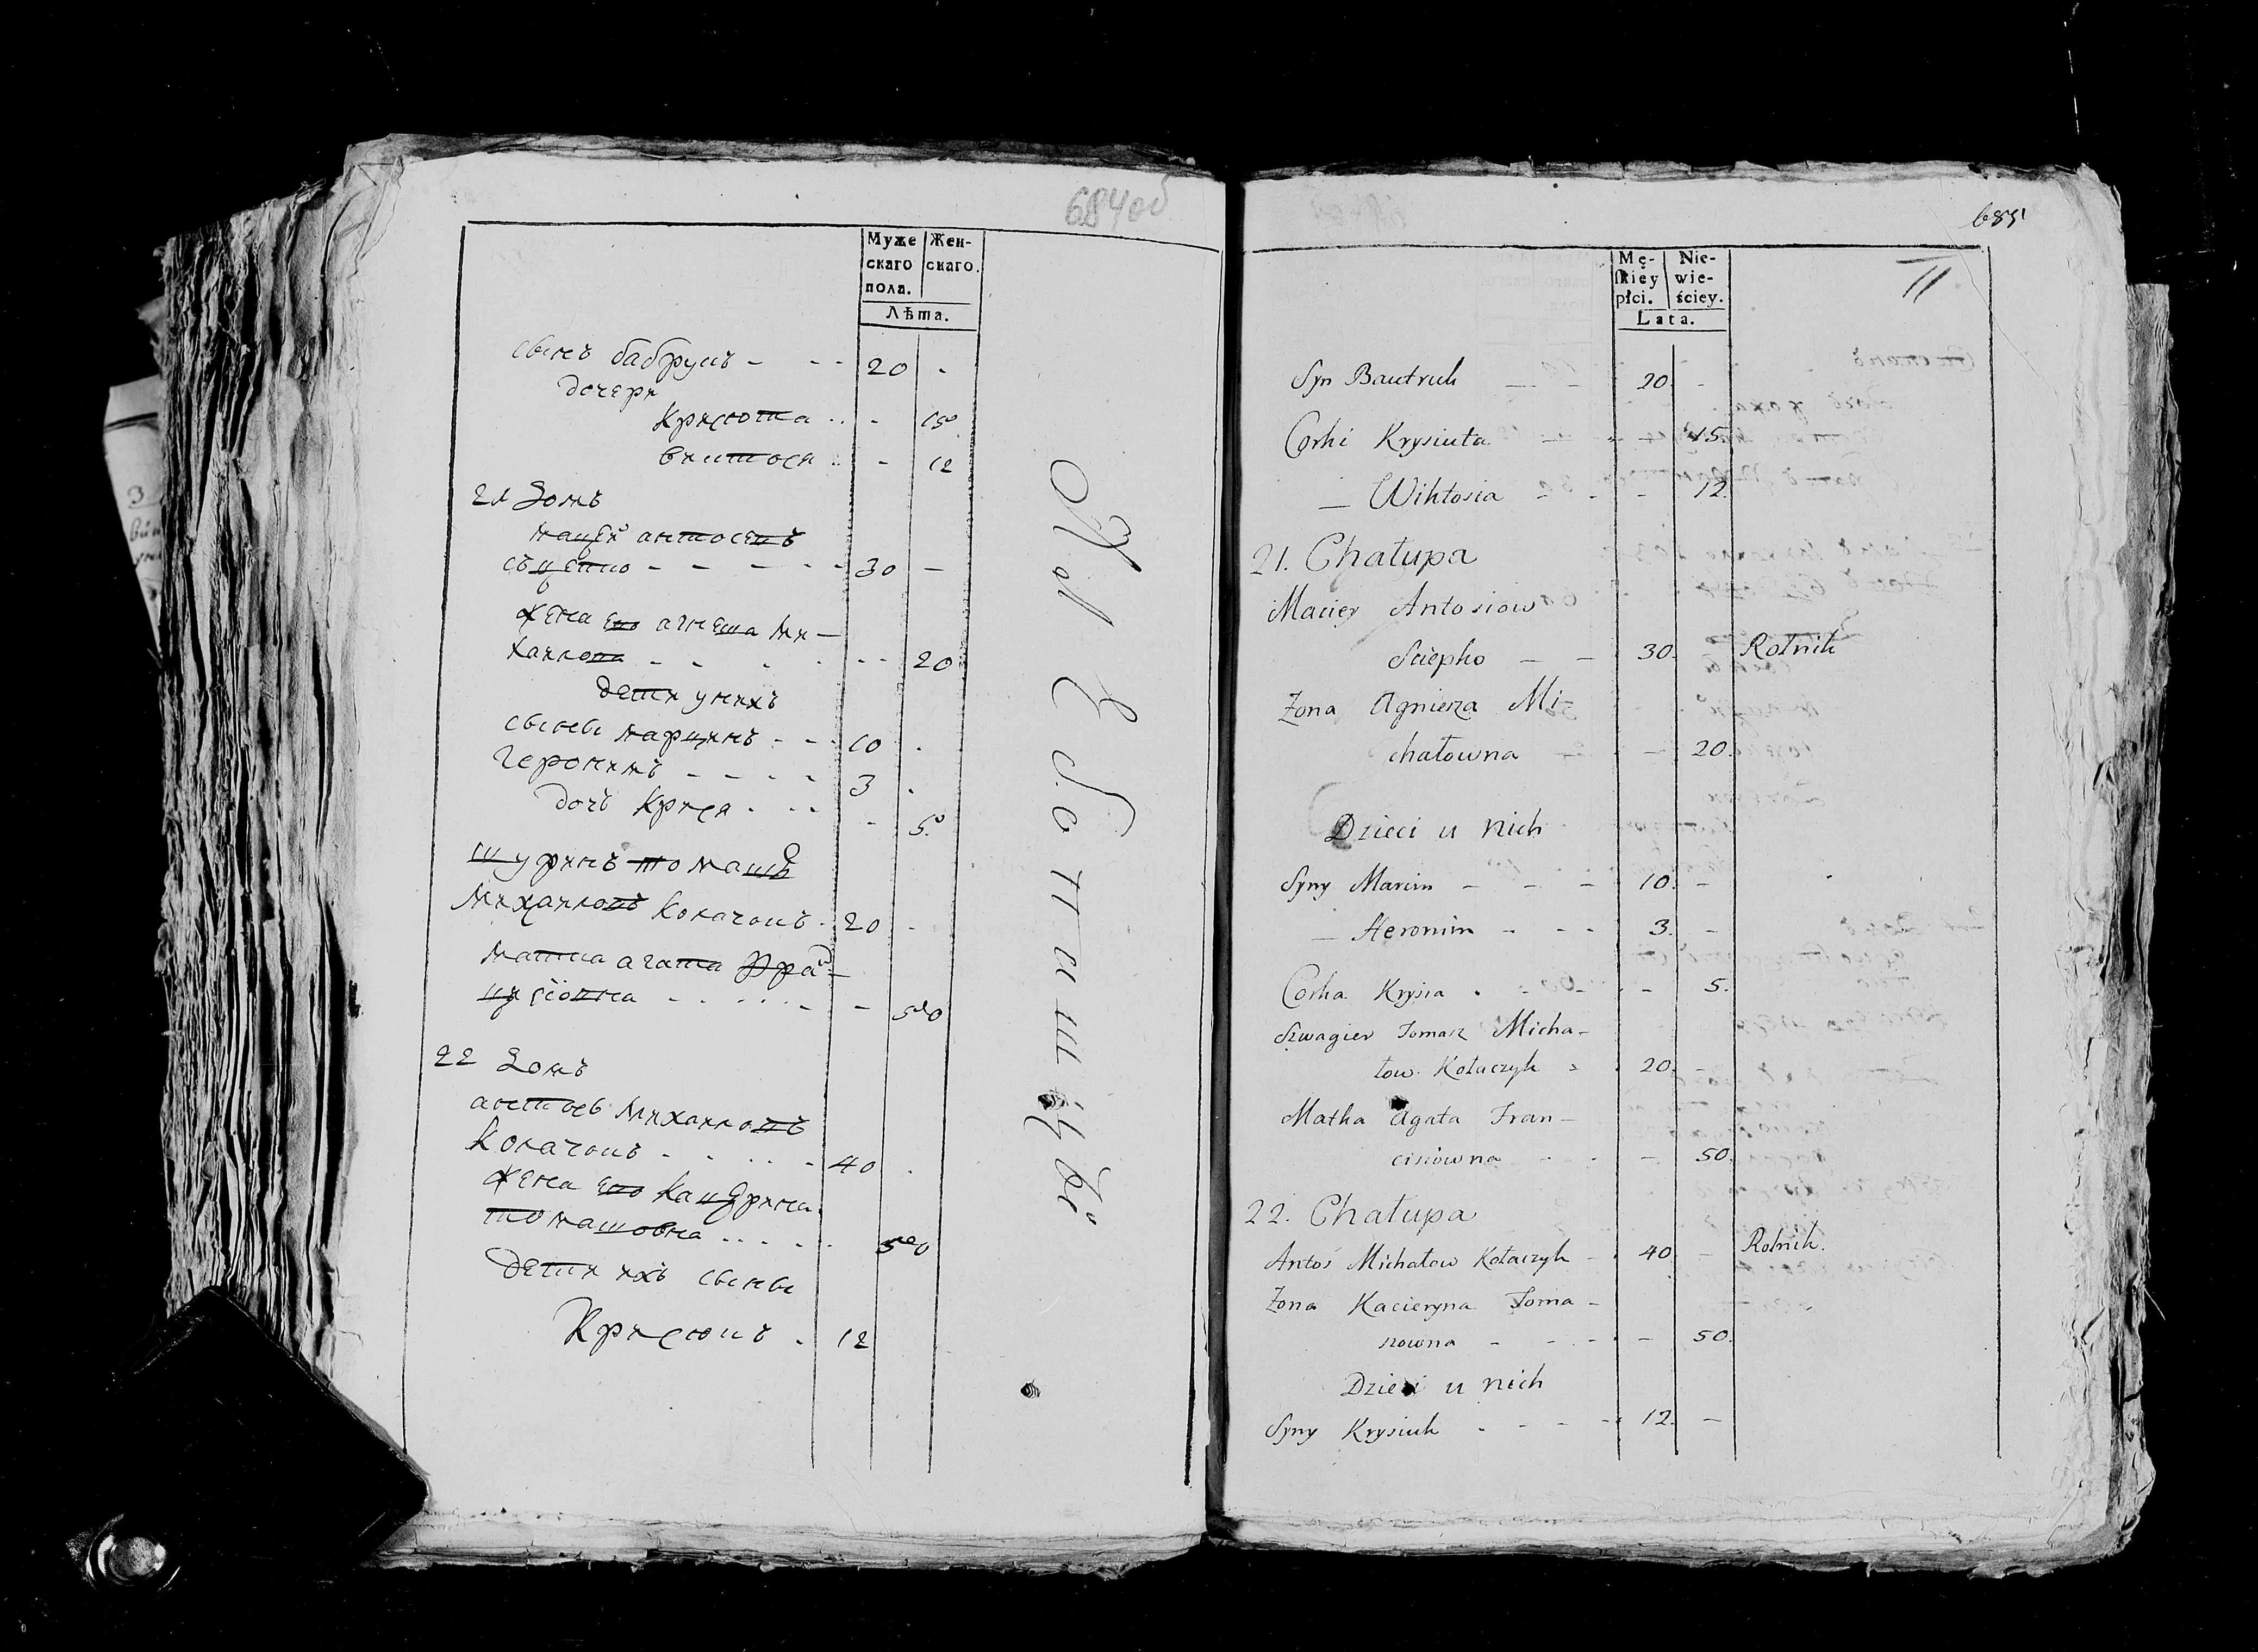 684об
Муже Жен-
скаго скаго.
пола.
Лѣта.
сынъ бавтрукъ - - - 20 -
дочери
Крисюта .. - 15
виктося .. - 12
21 Домъ
мацей антосевъ
сцепко - - - - - 30 -
жена его агнеша Ми-
хаилова - - - - - 20
дети у нихъ
сыны марцинъ - - 10 -
Геронимъ - - - - 3 -
дочь Крися - - - - 5
шуринъ томашъ
Михаиловъ Колачокъ . 20 -
матка агата Фран-
цисiовна - - - - - 50
22 Домъ
антось Михаиловъ
Колачокъ - - - - 40 -
жена его Кацерина
томашовна . . . . . 50
дети ихъ сыны
Крисюкъ . 12
685
Mę- Nie-
ſkiey wie-
płci. ściey.
Lata.
Syn Bautruk — - 20. -
Corki Krysiuta — - - 15.
— Wiktosia - - - - 12.
21. Chałupa
Maciey Antosiow
Sciepko — — 30. Rolnik
Żona Agniesza Mi-
chałowna — — 20.
Dzieci u nich
Syny Marcin - - - 10. -
— Heronim - - - 3. -
Corka Krysia - - - - 5.
Szwagier Tomasz Micha-
łow Kołaczyk - 20. -
Matka Agata Fran-
cisiowna - - - 50.
22. Chałupa
Antoś Michałow Kołaczyk - 40. - Rolnik.
Żona Kacieryna Toma-
szowna - - - - 50.
Dzieci u nich
Syny Krysiuk - - - - 12. -